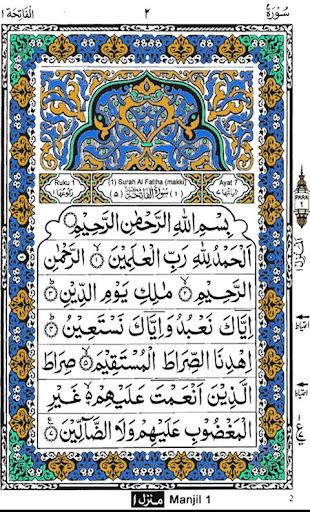 سُوْرَةُ ٢ اَلْفَاتِحَة ١
Ruku 1 (1) Surah Al Fatiha (makki) Ayat 7
(١) سُوْرَةُ الْفَاتِحَةِ (٥)
PARA 1
بِسْمِ اللّٰهِ الرَّحْمٰنِ الرَّحِيْمِ
اَلْحَمْدُ لِلّٰهِ رَبِّ الْعٰلَمِيْنَ ۝١ الرَّحْمٰنِ
الرَّحِيْمِ ۝٢ مٰلِكِ يَوْمِ الدِّيْنِ ۝٣
اِيَّاكَ نَعْبُدُ وَاِيَّاكَ نَسْتَعِيْنُ ۝٤
احتیاط
اِهْدِنَا الصِّرَاطَ الْمُسْتَقِيْمَ ۝٥ صِرَاطَ
الَّذِيْنَ اَنْعَمْتَ عَلَيْهِمْ ۝٦ غَيْرِ
احتیاط
الْمَغْضُوْبِ عَلَيْهِمْ وَلَا الضَّآلِّيْنَ ۝٧
ع
منزل ١ Manjil 1 2